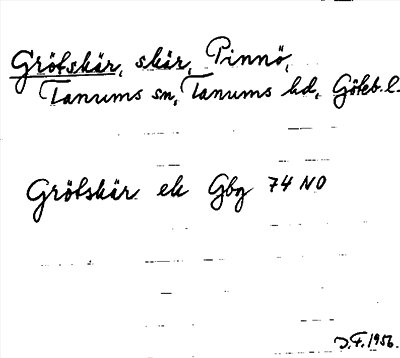 Grötskär, skär, Pinnö,
Tanums sn, Tanums hd, Göteb. l.
Grötskär ek Gbg 74 NO
J.F. 1956.